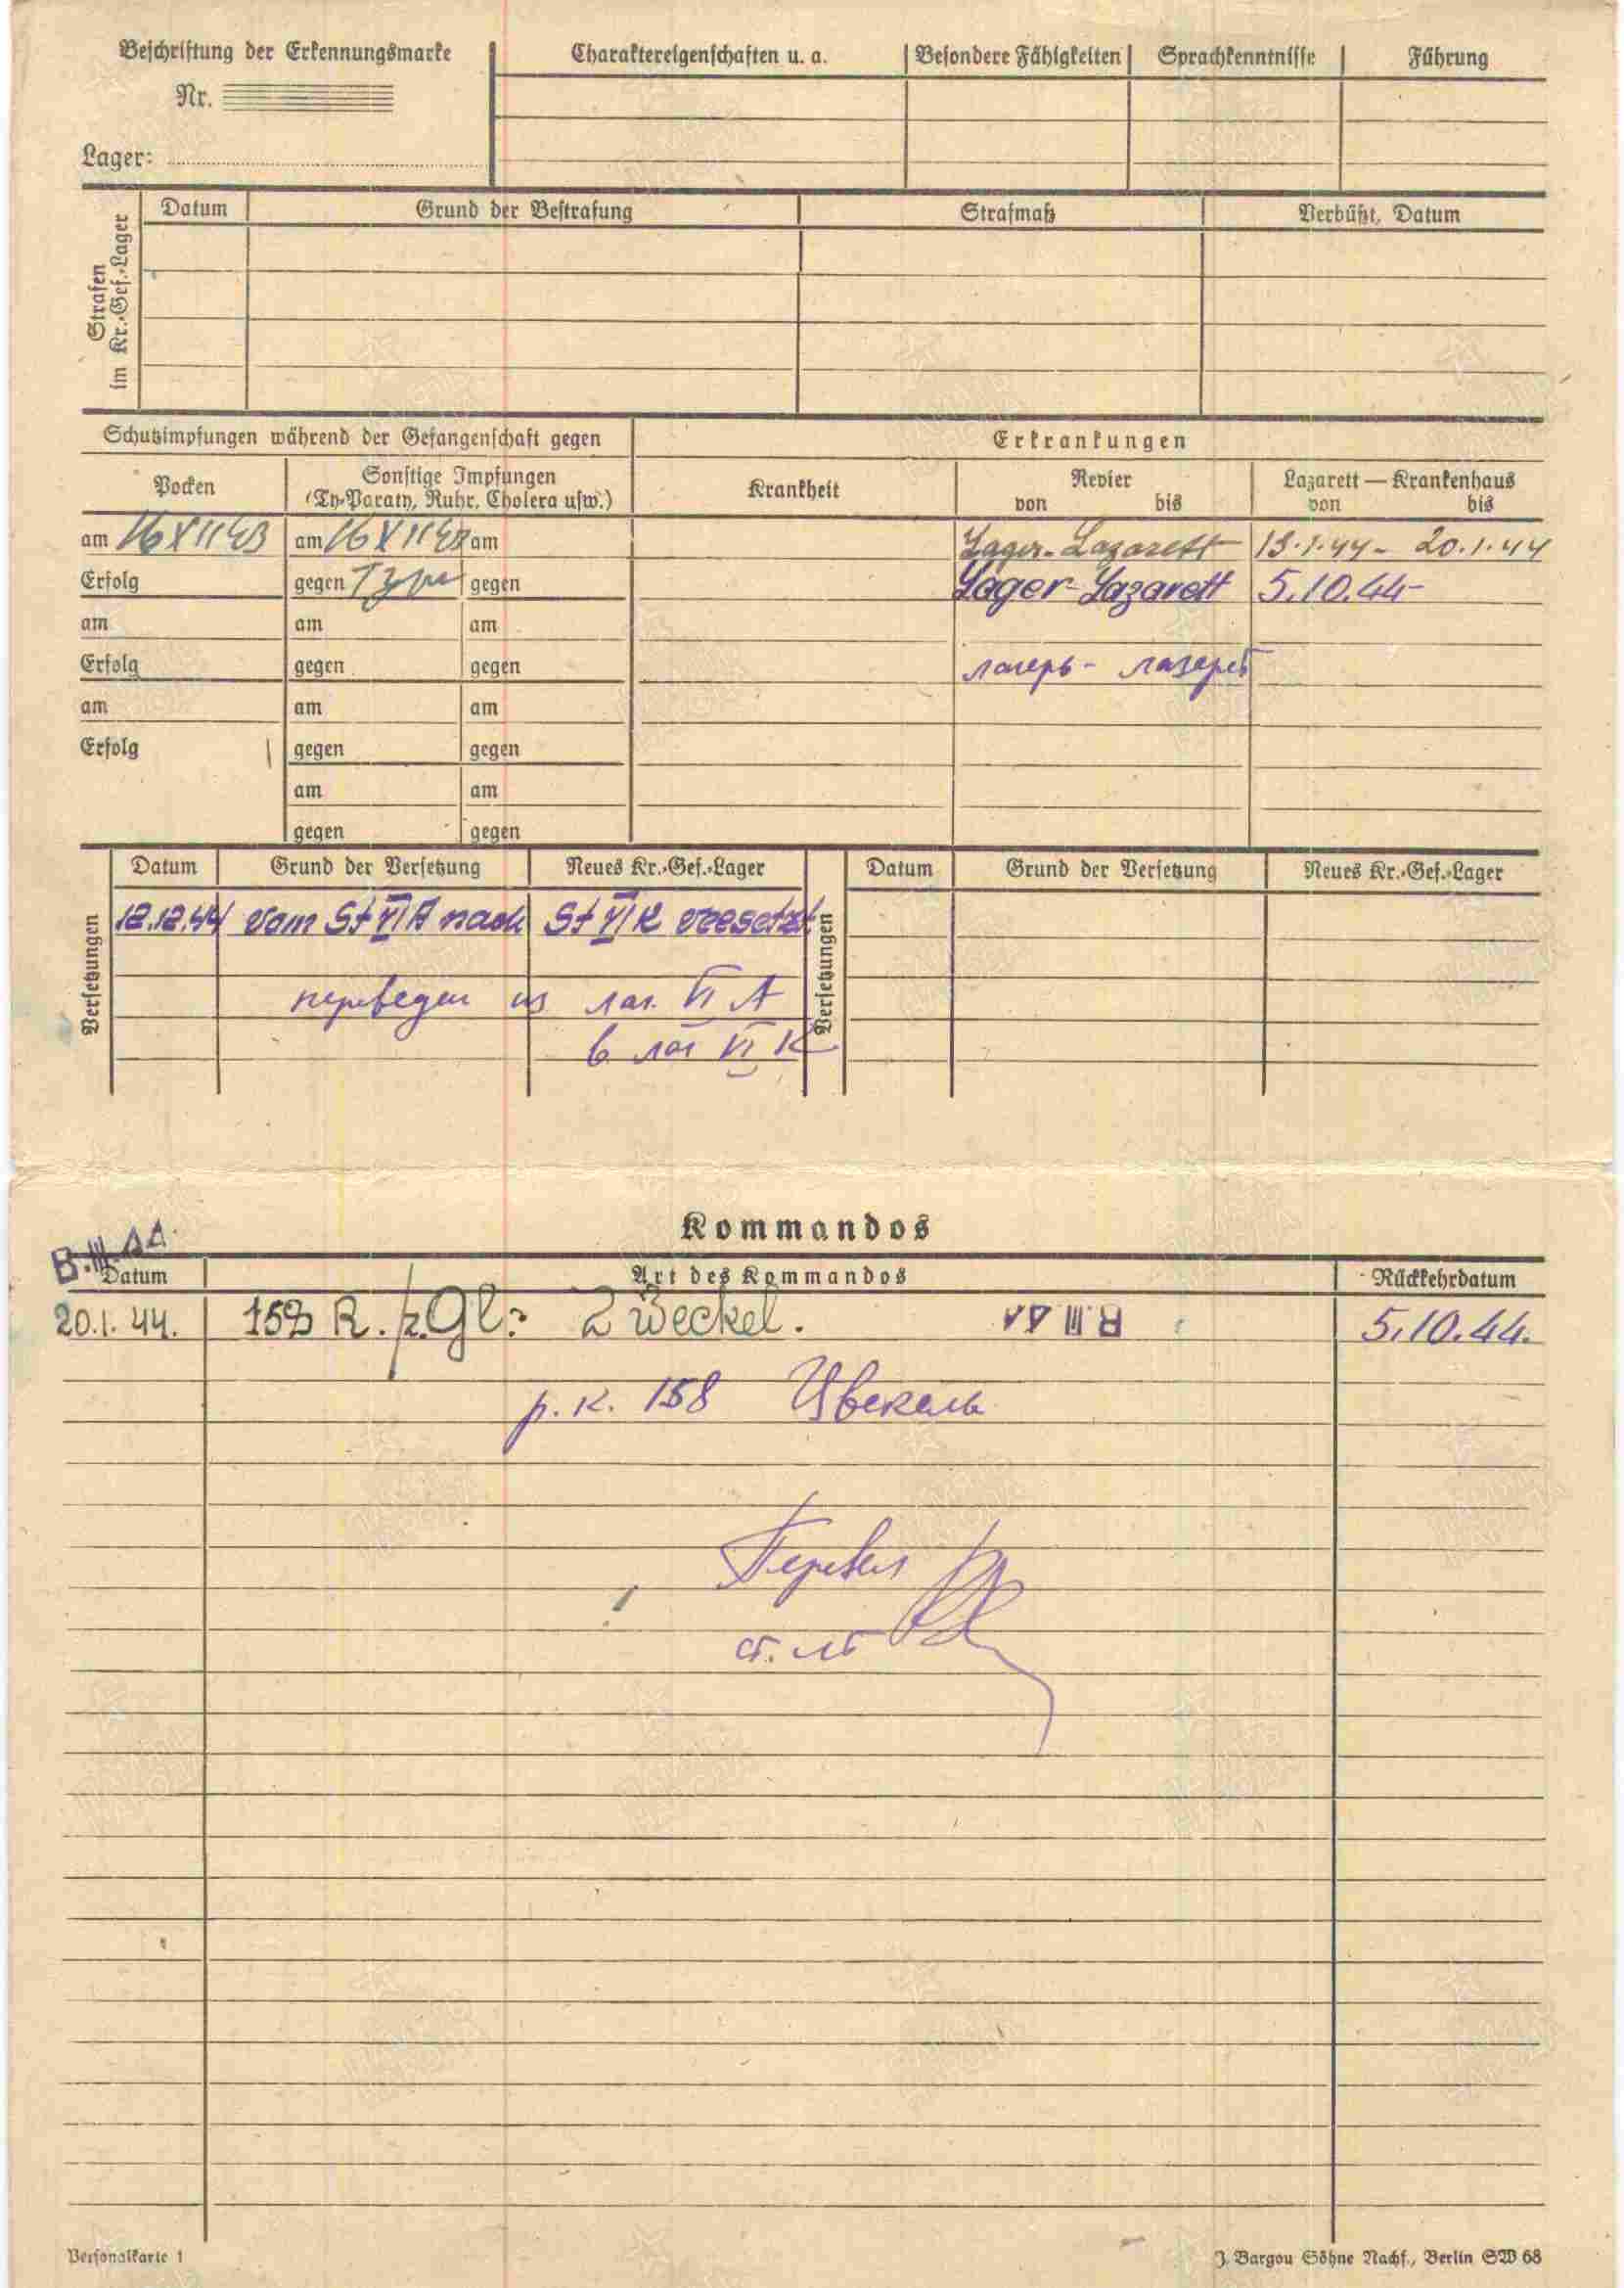 Beschriftung der Erkennungsmarke
Nr.
Lager:
Charaktereigenschaften u. a. Besondere Fähigkeiten Sprachkenntnisse Führung
Strafen
im Kr.-Gef.-Lager
Datum Grund der Bestrafung Strafmaß Verbüßt, Datum
Schutzimpfungen während der Gefangenschaft gegen Erkrankungen
Pocken Sonstige Impfungen
(Ty-Paraty, Ruhr, Cholera usw.)
Krankheit Revier
von bis
Lazarett — Krankenhaus
von bis
am 16 XII 43 am 16 XII 43 am Lager-Lazarett 13.1.44 - 20.1.44
Erfolg gegen gegen Lager-Lazarett 5.10.44-
am am am
Erfolg gegen gegen лагерь - лазарет
am am am
Erfolg gegen gegen
am am
gegen gegen
Versetzungen
Datum Grund der Versetzung Neues Kr.-Gef.-Lager
12.12.44 vom St VI A nach St VI K versetzt
переведен из лаг. VI A
в лаг VI K
Versetzungen
Datum Grund der Versetzung Neues Kr.-Gef.-Lager
Kommandos
Datum Art des Kommandos Rückkehrdatum
20.1.44. 158 R. Zweckel. 5.10.44.
р. к. 158 Цвекель
Перевел
ст. лт
Personalkarte 1
J. Bargou Söhne Nachf., Berlin SW 68